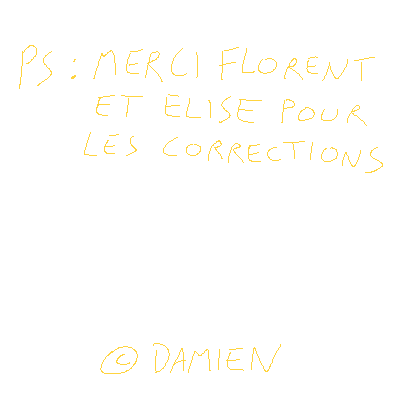 PS : MERCI FLORENT
ET ELISE POUR
LES CORRECTIONS
© DAMIEN